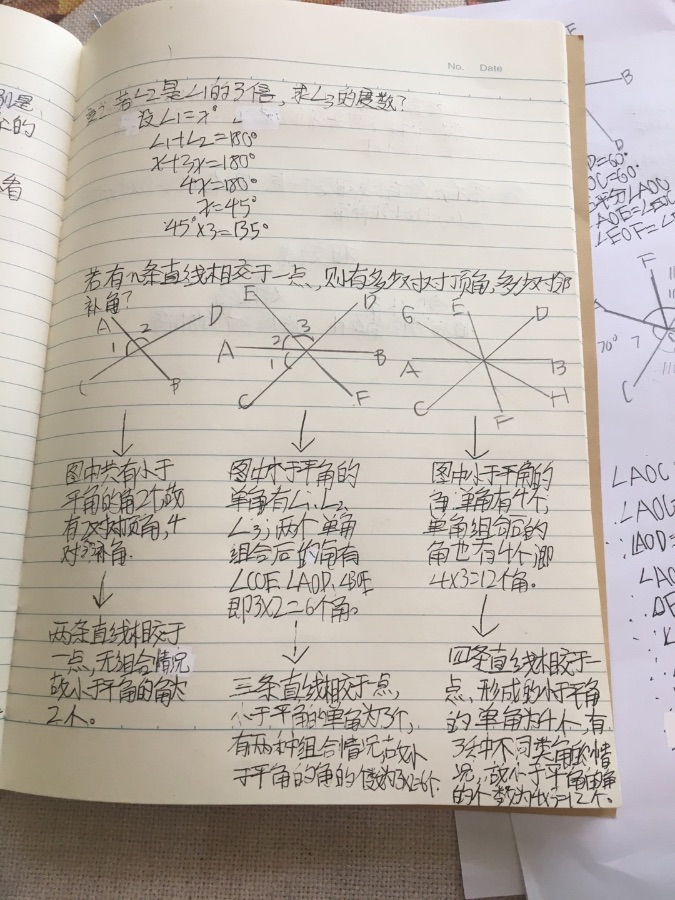 No. Date
若∠2是∠1的3倍，求∠3的度数？
设∠1=x°
∠1+∠2=180°
x+3x=180°
4x=180°
x=45°
45°×3=135°
若有n条直线相交于一点，则有多少对对顶角，多少对邻
补角？
A 2 D
1
C B
E D
2 3
A 1 B
C F
G E D
A B
C F H
图中共有小于
平角的角2个，故
有2对对顶角，4
对邻补角.
图中小于平角的
单角有∠1、∠2、
∠3；两个单角
组合后的角有
∠COE、∠AOD、∠BOE
即3×2=6个角。
图中小于平角的
角：单角有4个，
单角组合后的
角也有4个，即
4×3=12个角。
两条直线相交于
一点，无组合情况
故小于平角的角为
2个。
三条直线相交于一点，
小于平角的单角为3个，
有两种组合情况，故小
于平角的角的个数为3×2=6个.
四条直线相交于一
点，形成的小于平角
的单角为4个，有
3种不同类角的情
况，故小于平角的角
的个数为4×3=12个。
B
D
D=60°
OC=60°
平分∠AOC
AOE=∠EOC
∠EOF=∠
F
70° 7
C
∠AOC
∠AOD=
∠AO